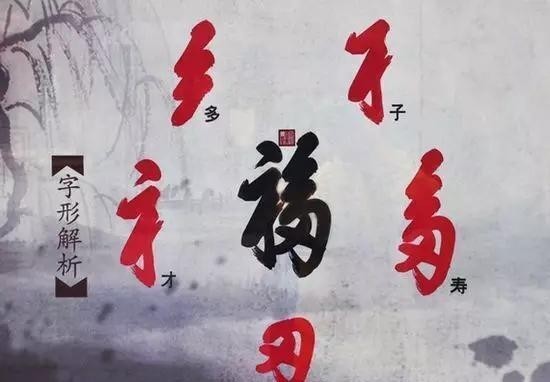 多
子
福
字形解析
才
寿
田